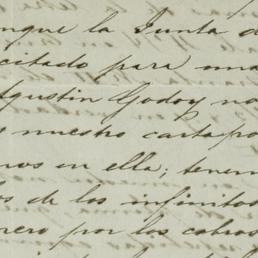 nque la Junta d
icitado para una
Agustin Godoy no
e nuestro carta po
mos en ella; tenem
os de los infinitos
nero por los cobros